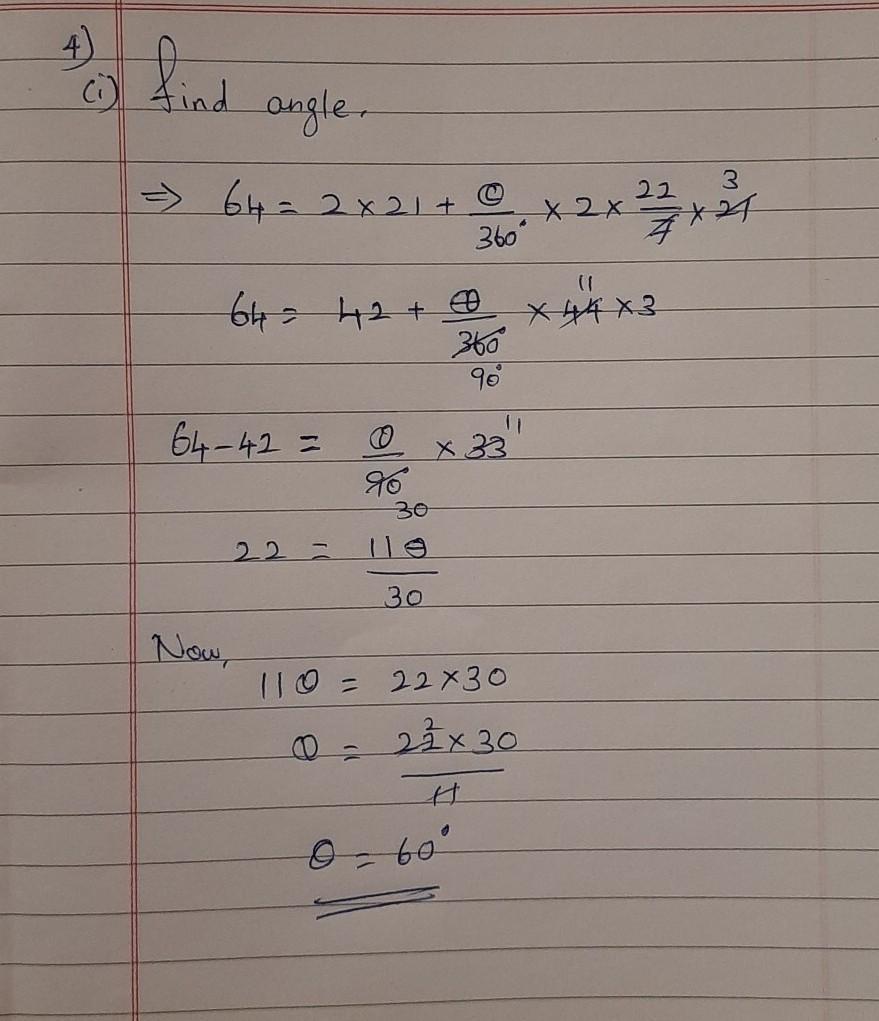 4)
(i) find angle.
⇒ 64 = 2 × 21 + θ/360° × 2 × 22/7 × 21 3
64 = 42 + θ/360° 90° × 44 11 × 3
64 - 42 = θ/90° 30 × 33 11
22 = 11θ/30
Now,
11θ = 22 × 30
θ = 22 2 × 30/11
θ = 60°